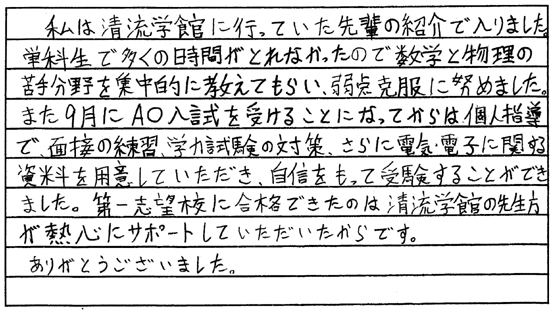 私は清流学館に行っていた先輩の紹介で入りました。
単科生で多くの日時間がとれなかったので数学と物理の
苦手分野を集中的に教えてもらい、弱点克服に努めました。
また9月にAO入試を受けることになってからは個人指導
で、面接の練習、学力試験の対策、さらに電気・電子に関する
資料を用意していただき、自信をもって受験することができ
ました。第一志望校に合格できたのは清流学館の先生方
が熱心にサポートしていただいたからです。
ありがとうございました。